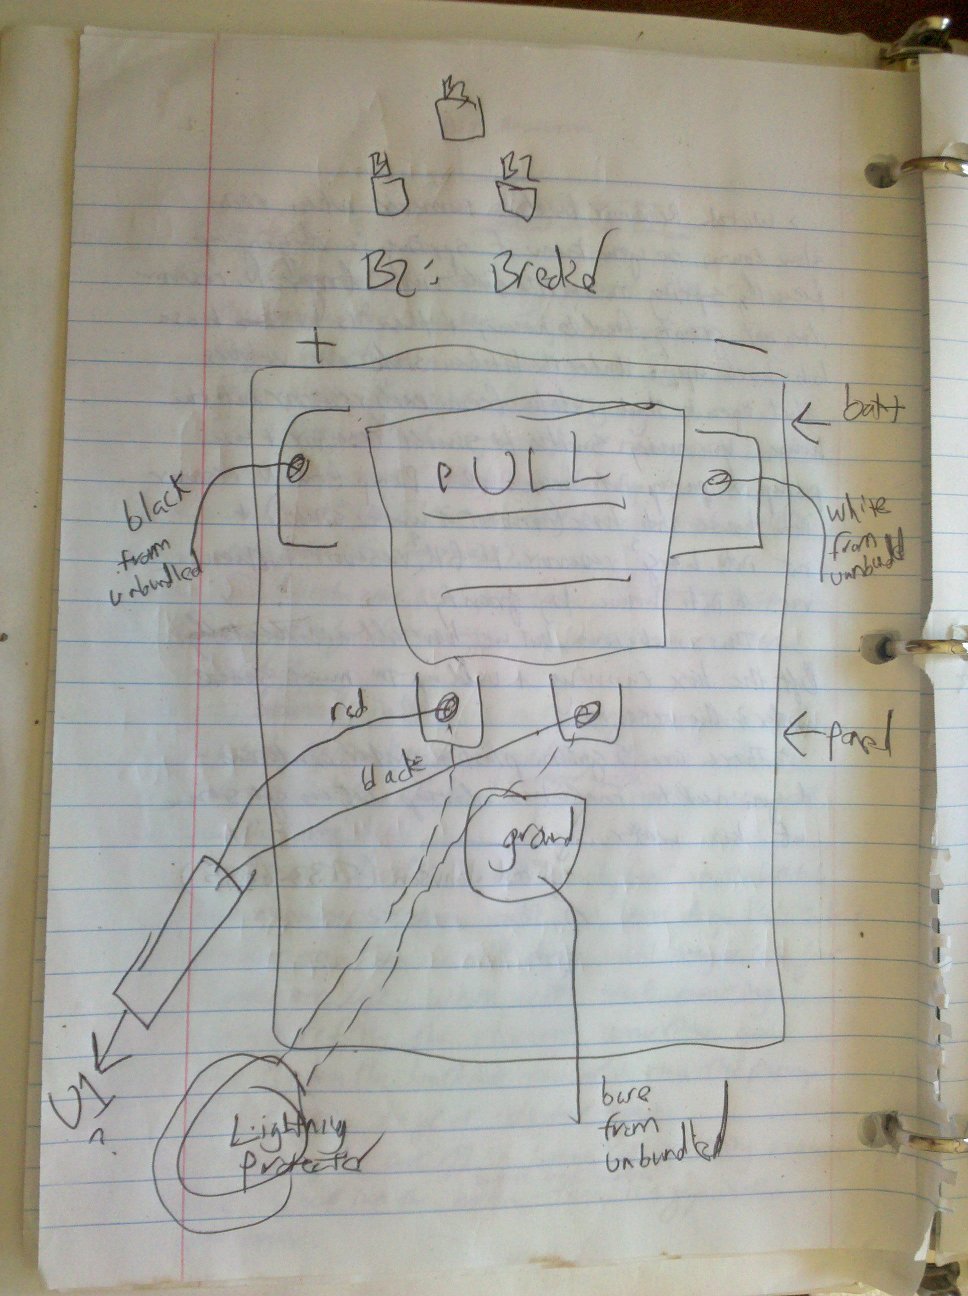 B3
B1 B2
B2: Breaker
+ −
batt
PULL
black
from
unbundled
white
from
unbundled
red
black
panel
ground
U1
?
Lightning
protector
bare
from
unbundled